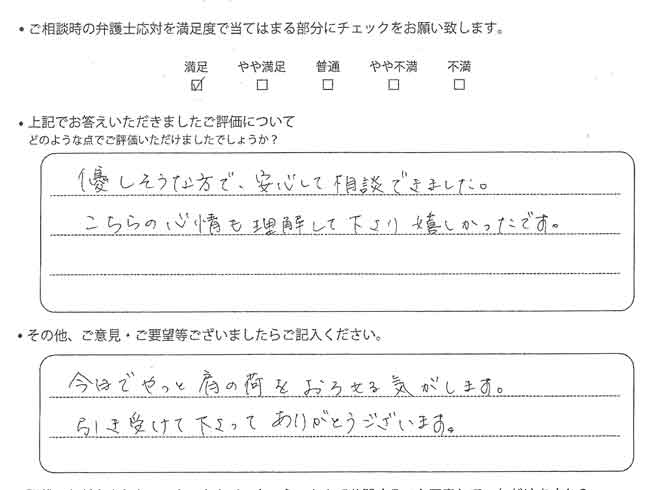 ・ご相談時の弁護士応対を満足度で当てはまる部分にチェックをお願い致します。
満足 やや満足 普通 やや不満 不満
☑ ☐ ☐ ☐ ☐
・上記でお答えいただきましたご評価について
どのような点でご評価いただけましたでしょうか？
優しそうな方で、安心して相談できました。
こちらの心情も理解して下さり嬉しかったです。
・その他、ご意見・ご要望等ございましたらご記入ください。
今日でやっと肩の荷をおろせる気がします。
引き受けて下さってありがとうございます。